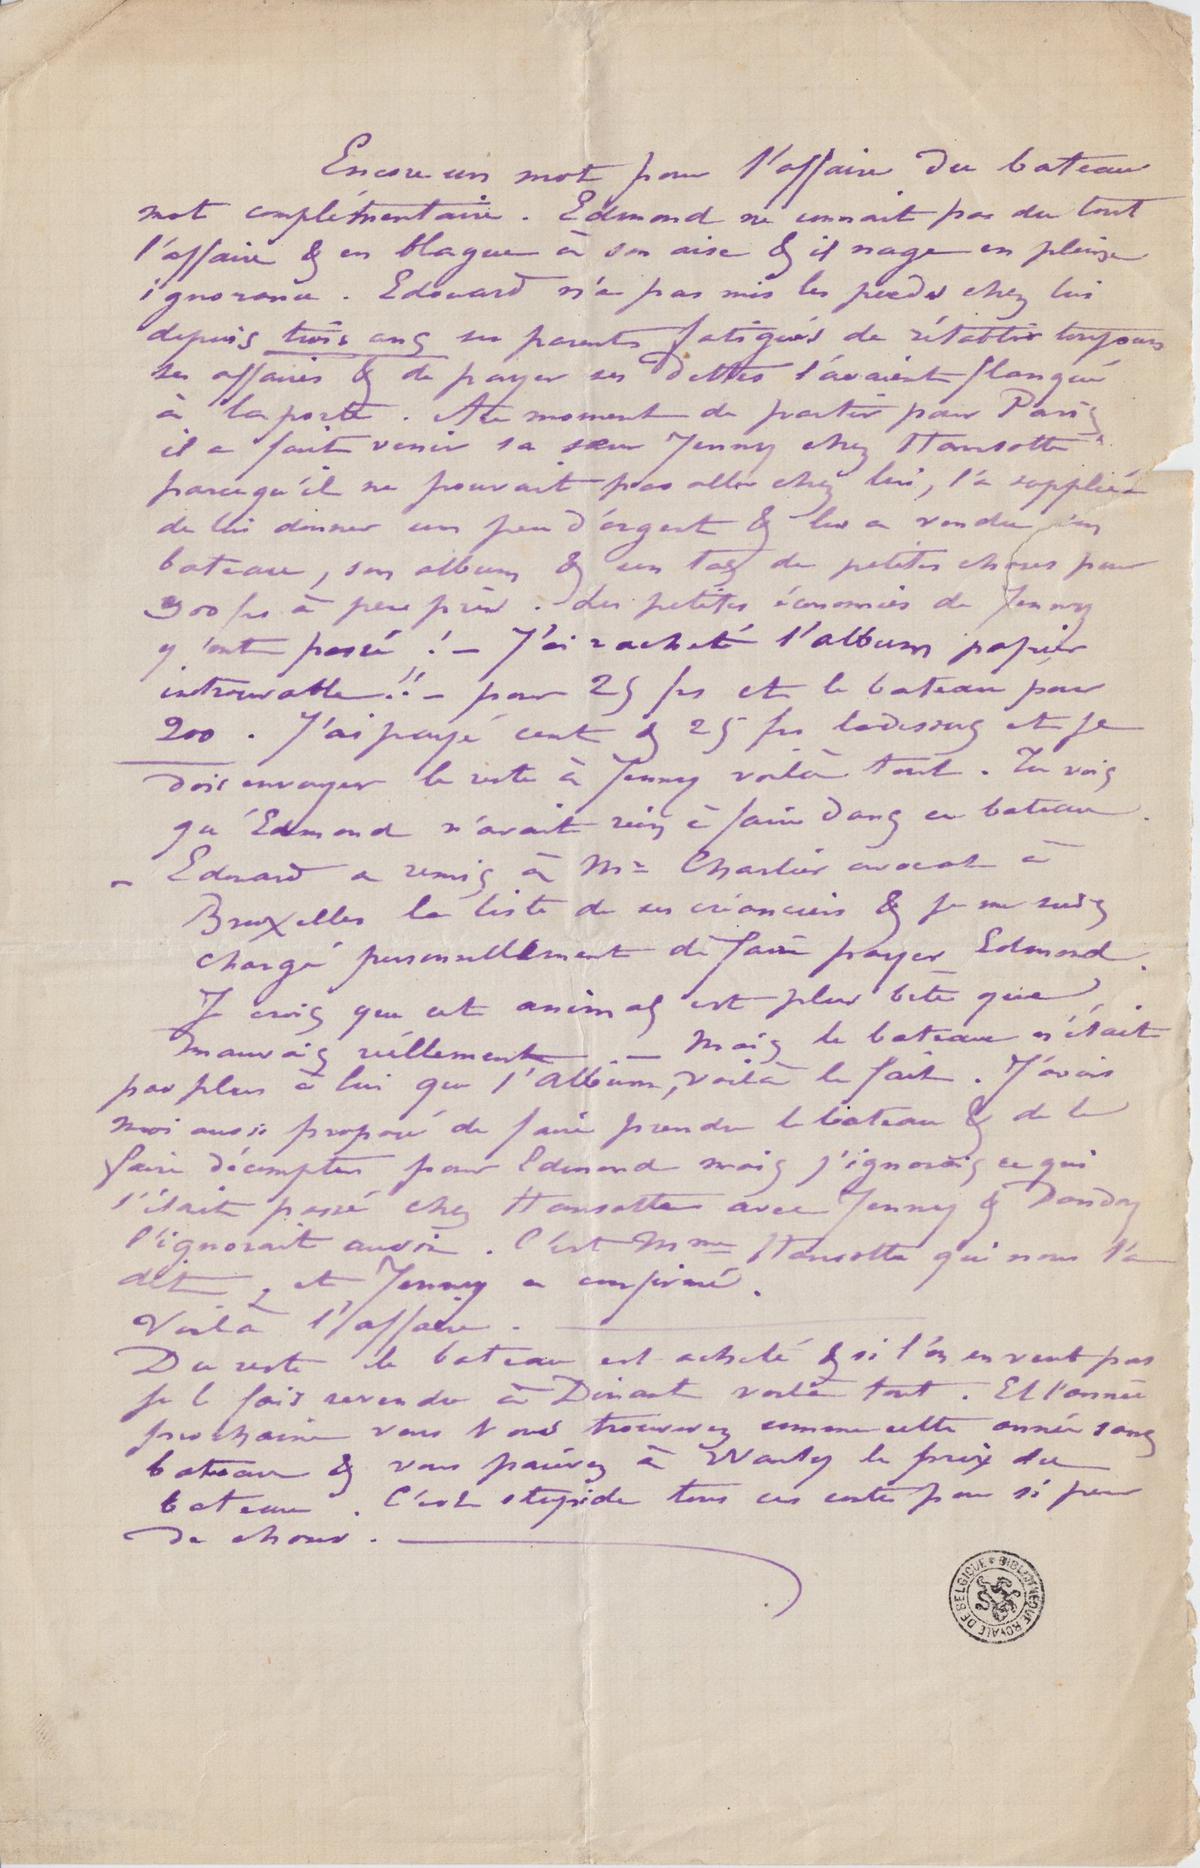 Encore un mot pour l'affaire du bateau
mot complémentaire. Edmond ne connait pas du tout
l'affaire & en blague à son aise & il nage en pleine
ignorance. Edouard n'a pas mis les pieds chez lui
depuis trois ans ses parents fatigués de rétablir toujours
ses affaires & de payer ses dettes l'avaient flanqué
à la porte. Au moment de partir pour Paris
il a fait venir sa sœur Jenny chez Hansotte
parcequ'il ne pouvait pas aller chez lui, l'a suppliée
de lui donner un peu d'argent & lui a vendu son
bateau, son album & un tas de petites choses pour
300 frs à peu près. Les petites économies de Jenny
y ont passé ! — J'ai racheté l'album papier
introuvable !! — pour 25 frs et le bateau pour
200. J'ai payé cent & 25 frs ladessus et je
dois envoyer le reste à Jenny voilà tout. Tu vois
qu'Edmond n'avait rien à faire dans ce bateau.
– Edouard a remis à Mr Charlier avocat à
Bruxelles la liste de ses créanciers & je me suis
chargé personnellement de faire payer Edmond.
Je crois que cet animal est plus bête que
mauvais réellement — Mais le bateau n'était
pas plus à lui que l'album, voilà le fait. J'avais
moi aussi proposé de faire prendre le bateau & de le
faire décompter pour Edmond mais j'ignorais ce qui
s'était passé chez Hansotte avec Jenny & Dandoy
l'ignorait aussi. C'est Mme Hansotte qui nous l'a
dit, et Jenny a confirmé.
Voilà l'affaire.
Du reste le bateau est acheté & si l'on en veut pas
je le fais revendre à Dinant voilà tout. Et l'année
prochaine vous vous trouverez comme cette année sans
bateau & vous paierez à Warly le prix du
bateau. C'est stupide tous ces contes pour si peu
de choses.
BIBLIOTHÈQUE ROYALE DE BELGIQUE